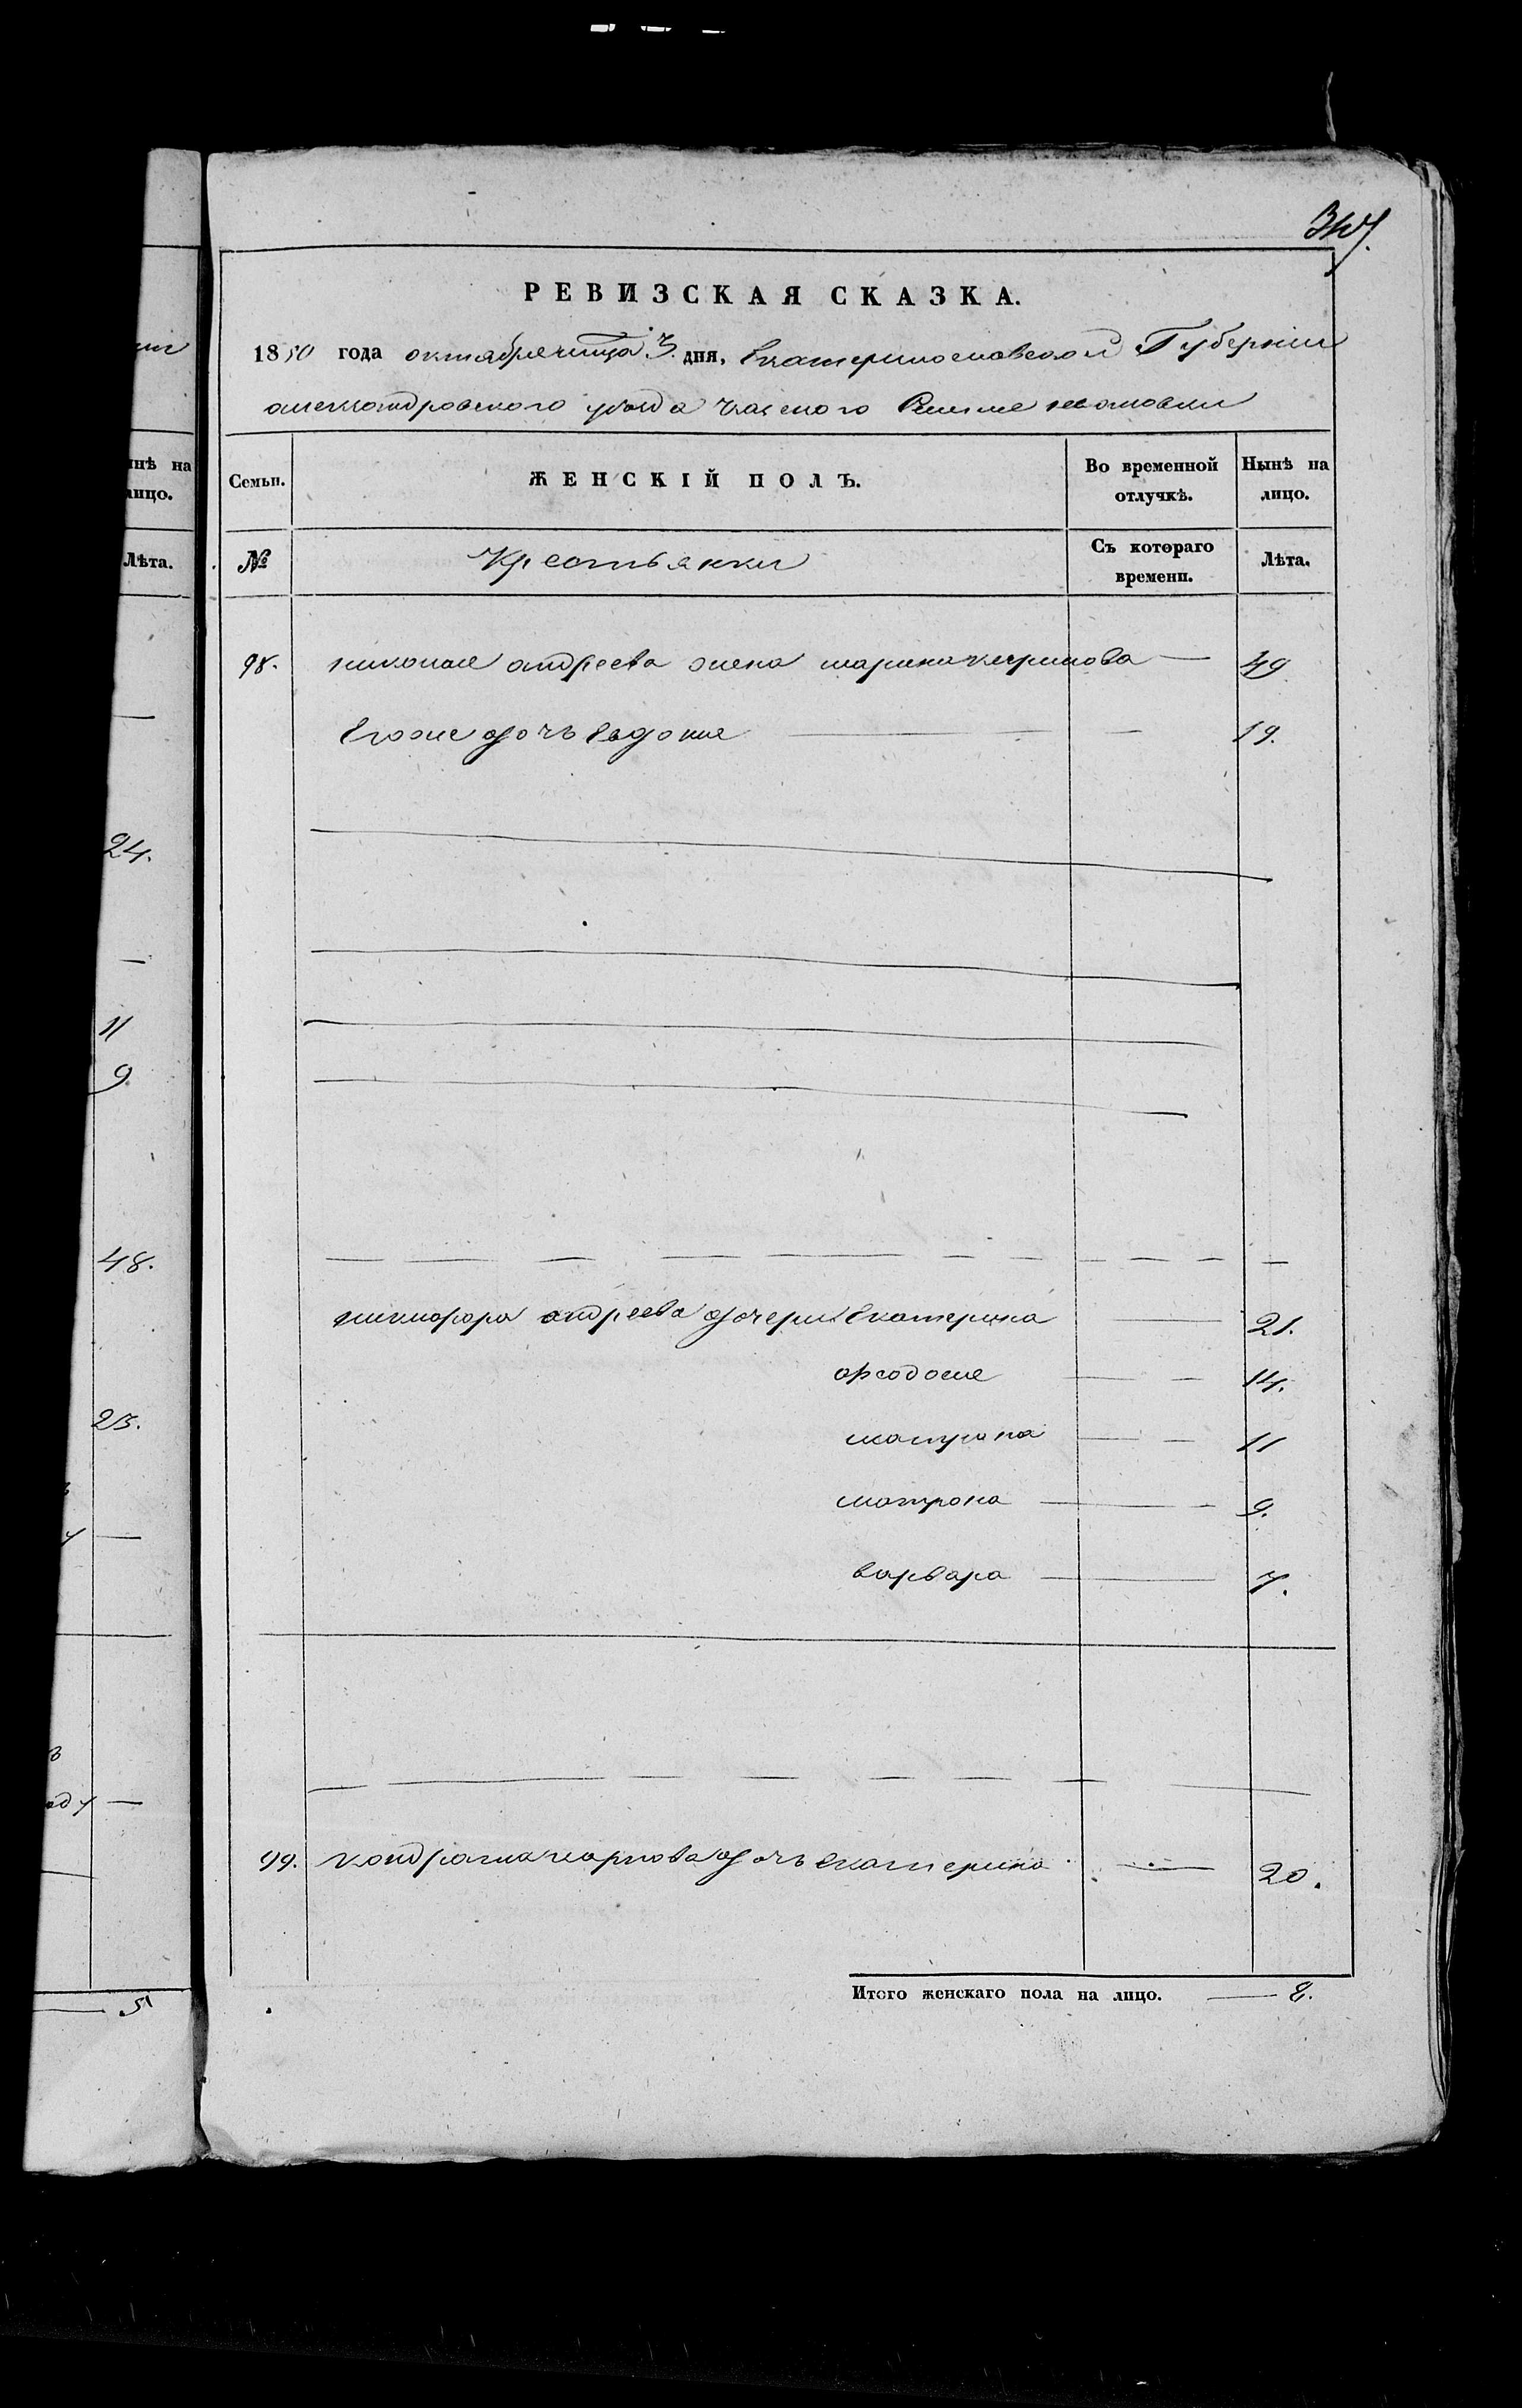 РЕВИЗСКАЯ СКАЗКА.
1850 года октября месяца 3. дня, Екатеринославской Губернии
александровского уезда
Семьи. ЖЕНСКІЙ ПОЛЪ. Во временной отлучкѣ. Нынѣ на лицо.
№ Крестьянки Съ котораго времени. Лѣта.
98. николая андреева жена марина — 49
Его же дочь Евдокия — 19.
никифора андреева дочери Екатерина — 21.
феодосия — 14.
11
матрона — 9.
варвара — 7.
99. кондрата карпова дочь екатерина — 20.
Итого женскаго пола на лицо. — 8.
нѣ на
лицо.
Лѣта.
24.
11
9.
48.
23.
5